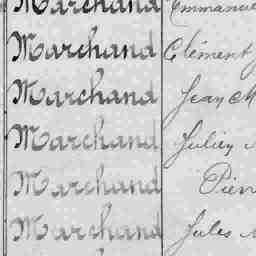 Marchand Emmanuel
Marchand Clément
Marchand Jean M
Marchand Julien
Marchand Pierr
Marchand Jules